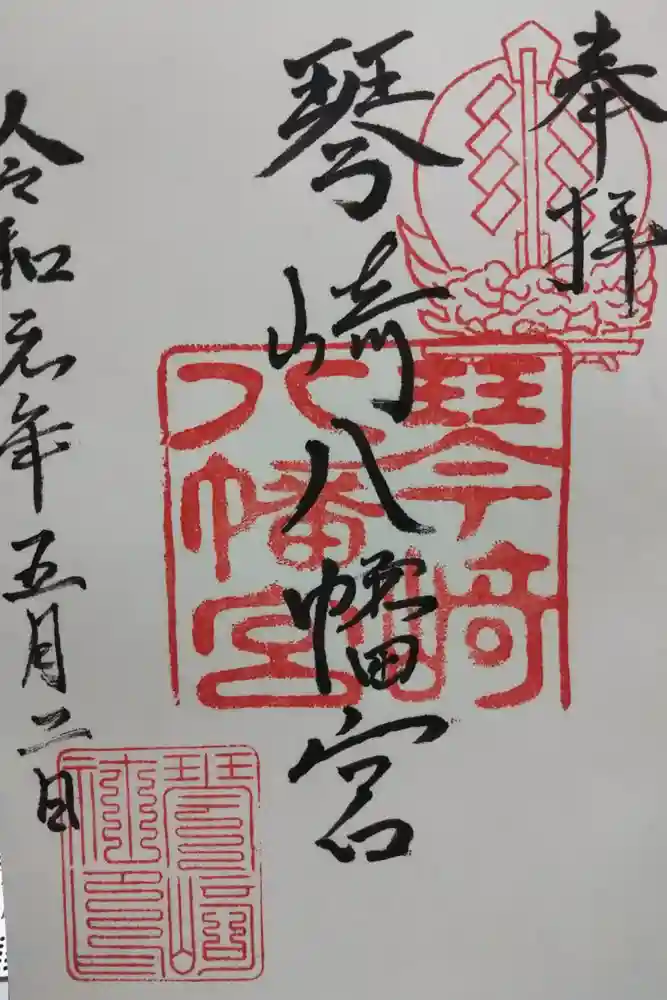 奉拝
琴崎八幡宮
琴崎
八幡宮
令和元年五月二日